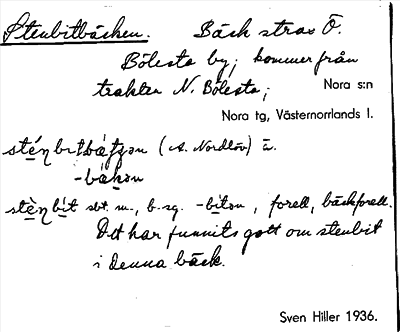 Stenbitbäcken. Bäck strax Ö.
Bölesta by; kommer från
trakten N. Bölesta; Nora s:n
Nora tg, Västernorrlands l.
(A. Nordlöv) ä.
sbt. m., b. sg. -bíton, forell, bäckforell.
Det har funnits gott om stenbit
i denna bäck.
Sven Hiller 1936.